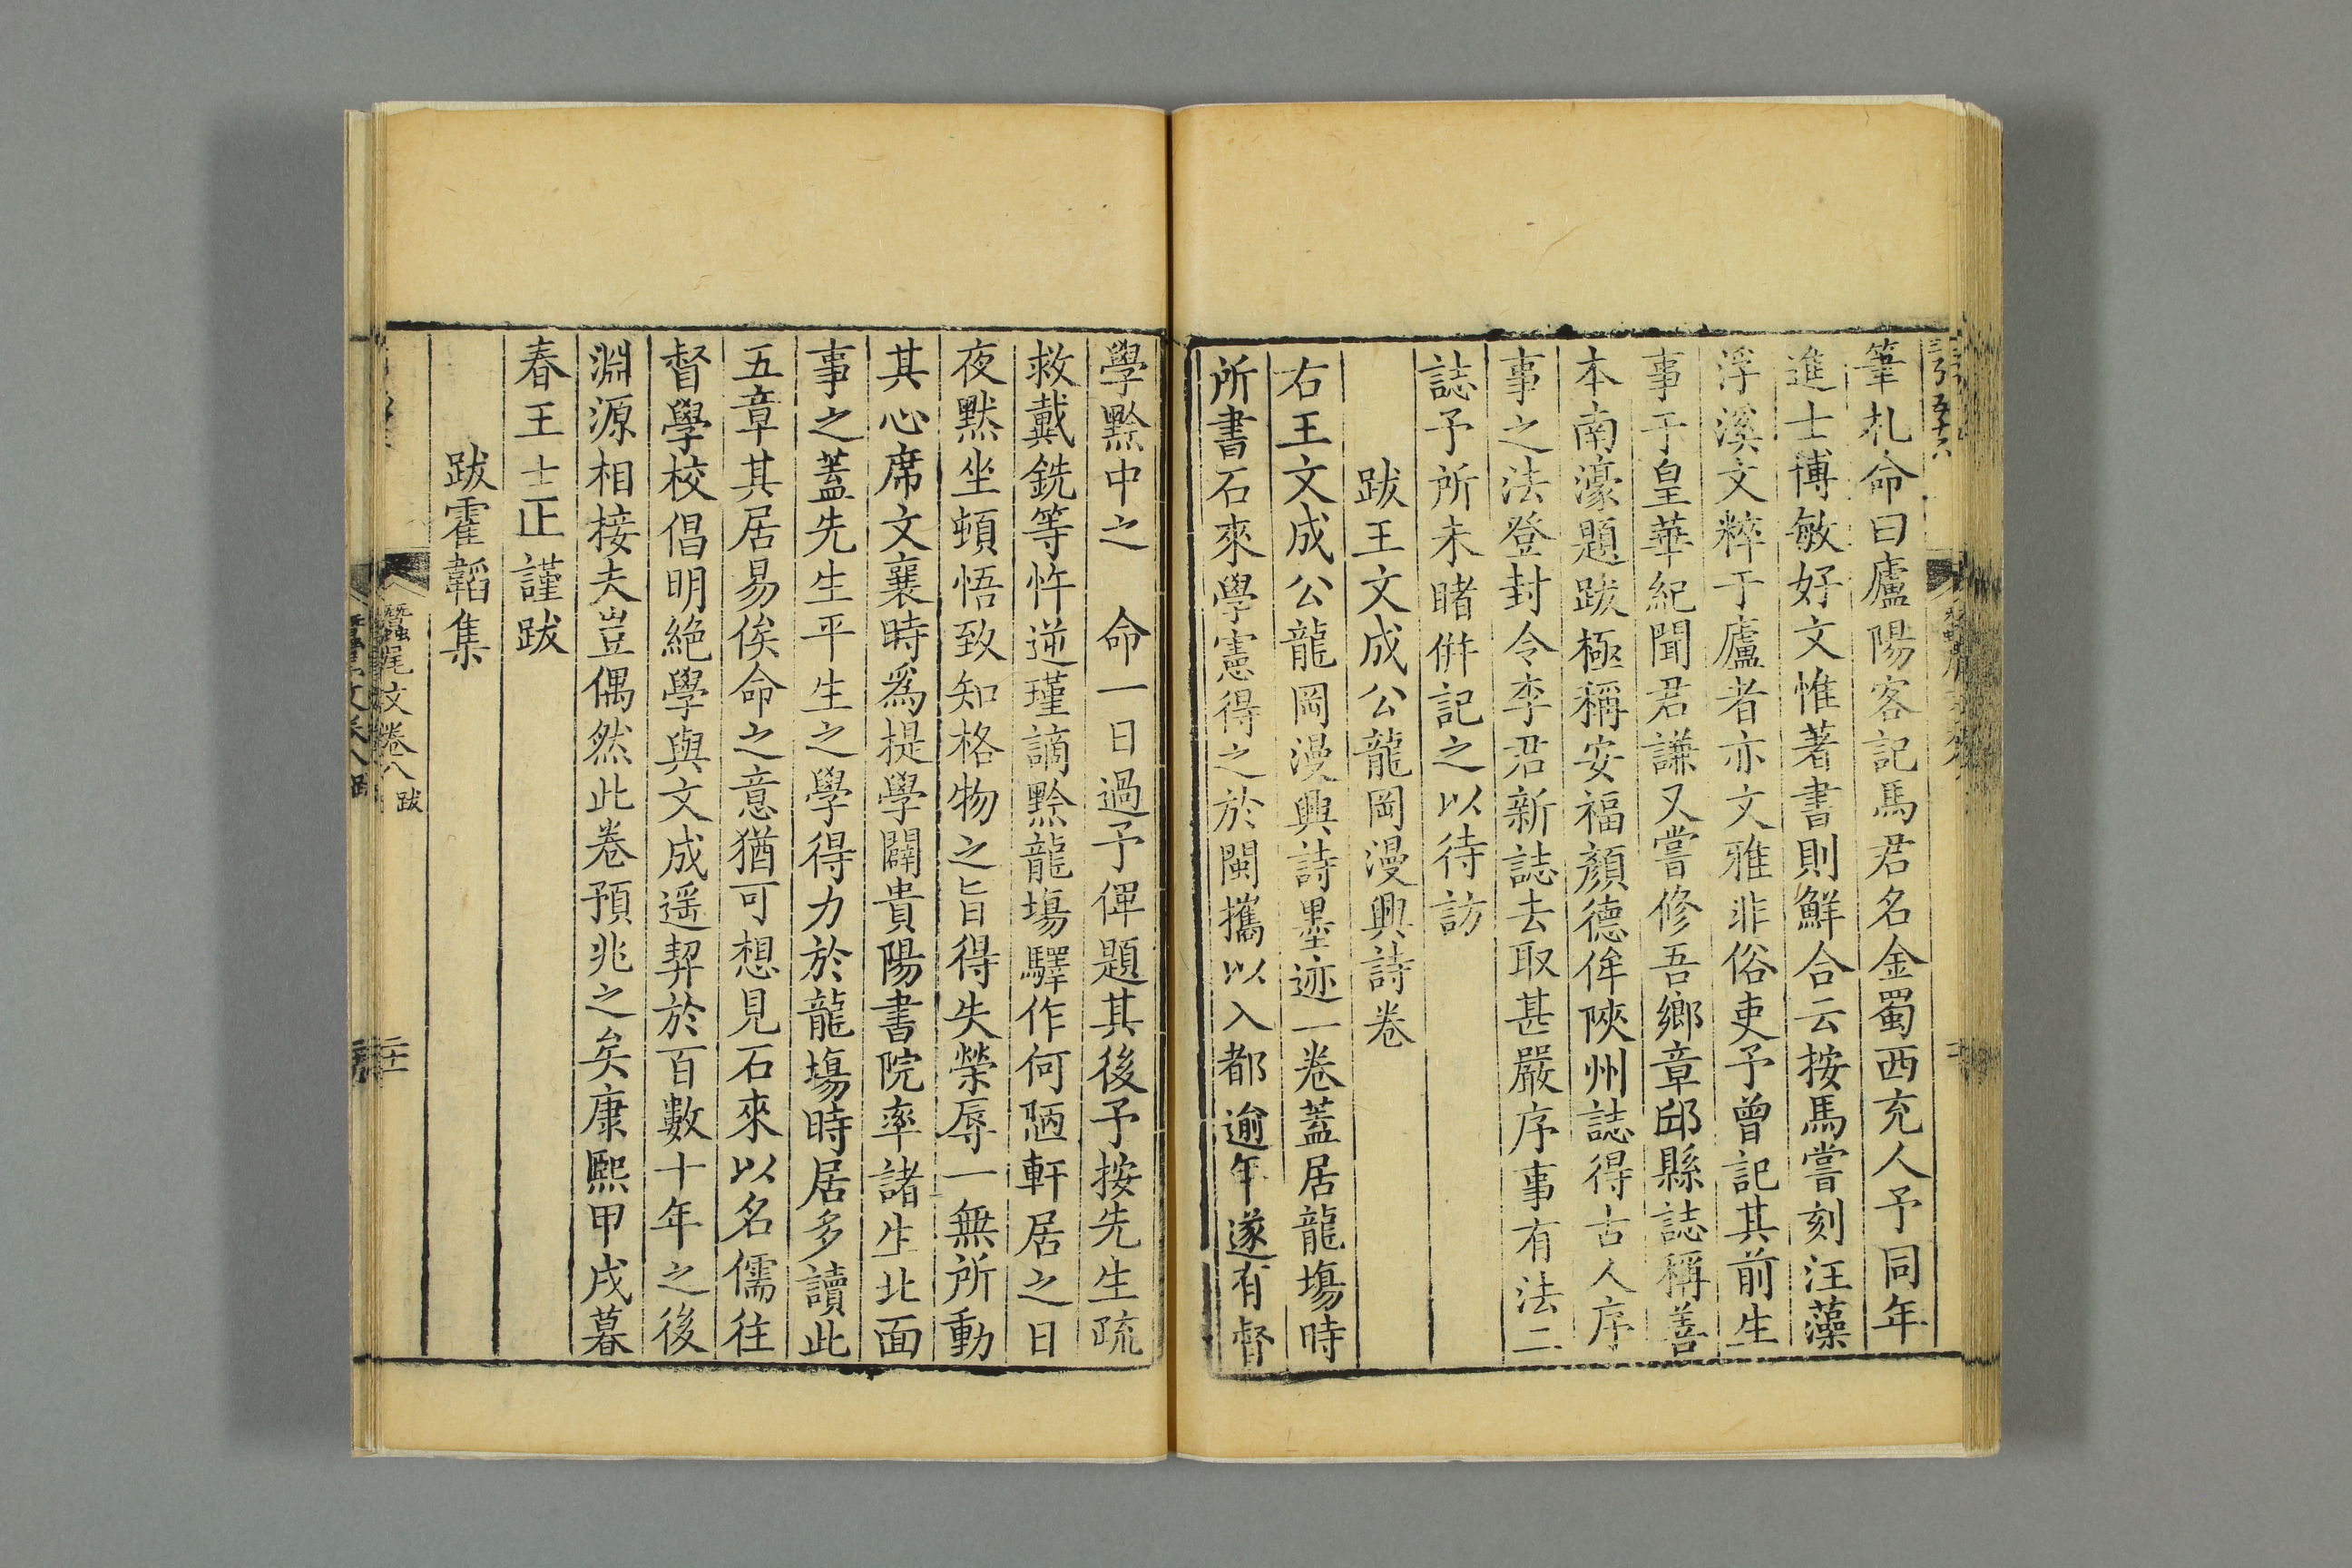 筆札命曰廬陽客記馬君名金蜀西充人予同年
進士博敏好文惟著書則鮮合云按馬嘗刻汪藻
浮溪文粹于廬者亦文雅非俗吏予曾記其前生
事于皇華紀聞君謙又嘗修吾鄉章邱縣誌稱善
本南濠題跋極稱安福顏德侔陝州誌得古人序
事之法登封令李君新誌去取甚嚴序事有法二
誌予所未睹併記之以待訪
跋王文成公龍岡漫興詩卷
右王文成公龍岡漫興詩墨迹一卷蓋居龍場時
所書石來學憲得之於閩攜以入都逾年遂有督
學黔中之 命一日過予俾題其後予按先生疏
救戴銑等忤逆瑾謫黔龍場驛作何陋軒居之日
夜默坐頓悟致知格物之旨得失榮辱一無所動
其心席文襄時爲提學闢貴陽書院率諸生北面
事之蓋先生平生之學得力於龍場時居多讀此
五章其居易俟命之意猶可想見石來以名儒往
督學校倡明絕學與文成遥契於百數十年之後
淵源相接夫豈偶然此卷預兆之矣康熙甲戌暮
春王士正謹跋
跋霍韜集
蠶尾文卷八 跋
二十一